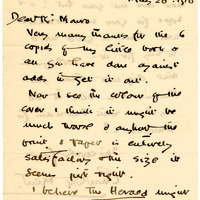 May 28. 1910
Dear Mr. Marro
Very many thanks for the 6
copies of my little book &
all you have done against
odds to get it out.
Now I see the colour of the
cover I think it might be
much worse & anyhow the
print & paper is entirely
satisfactory the size it
seems just right.
I believe the Herald might